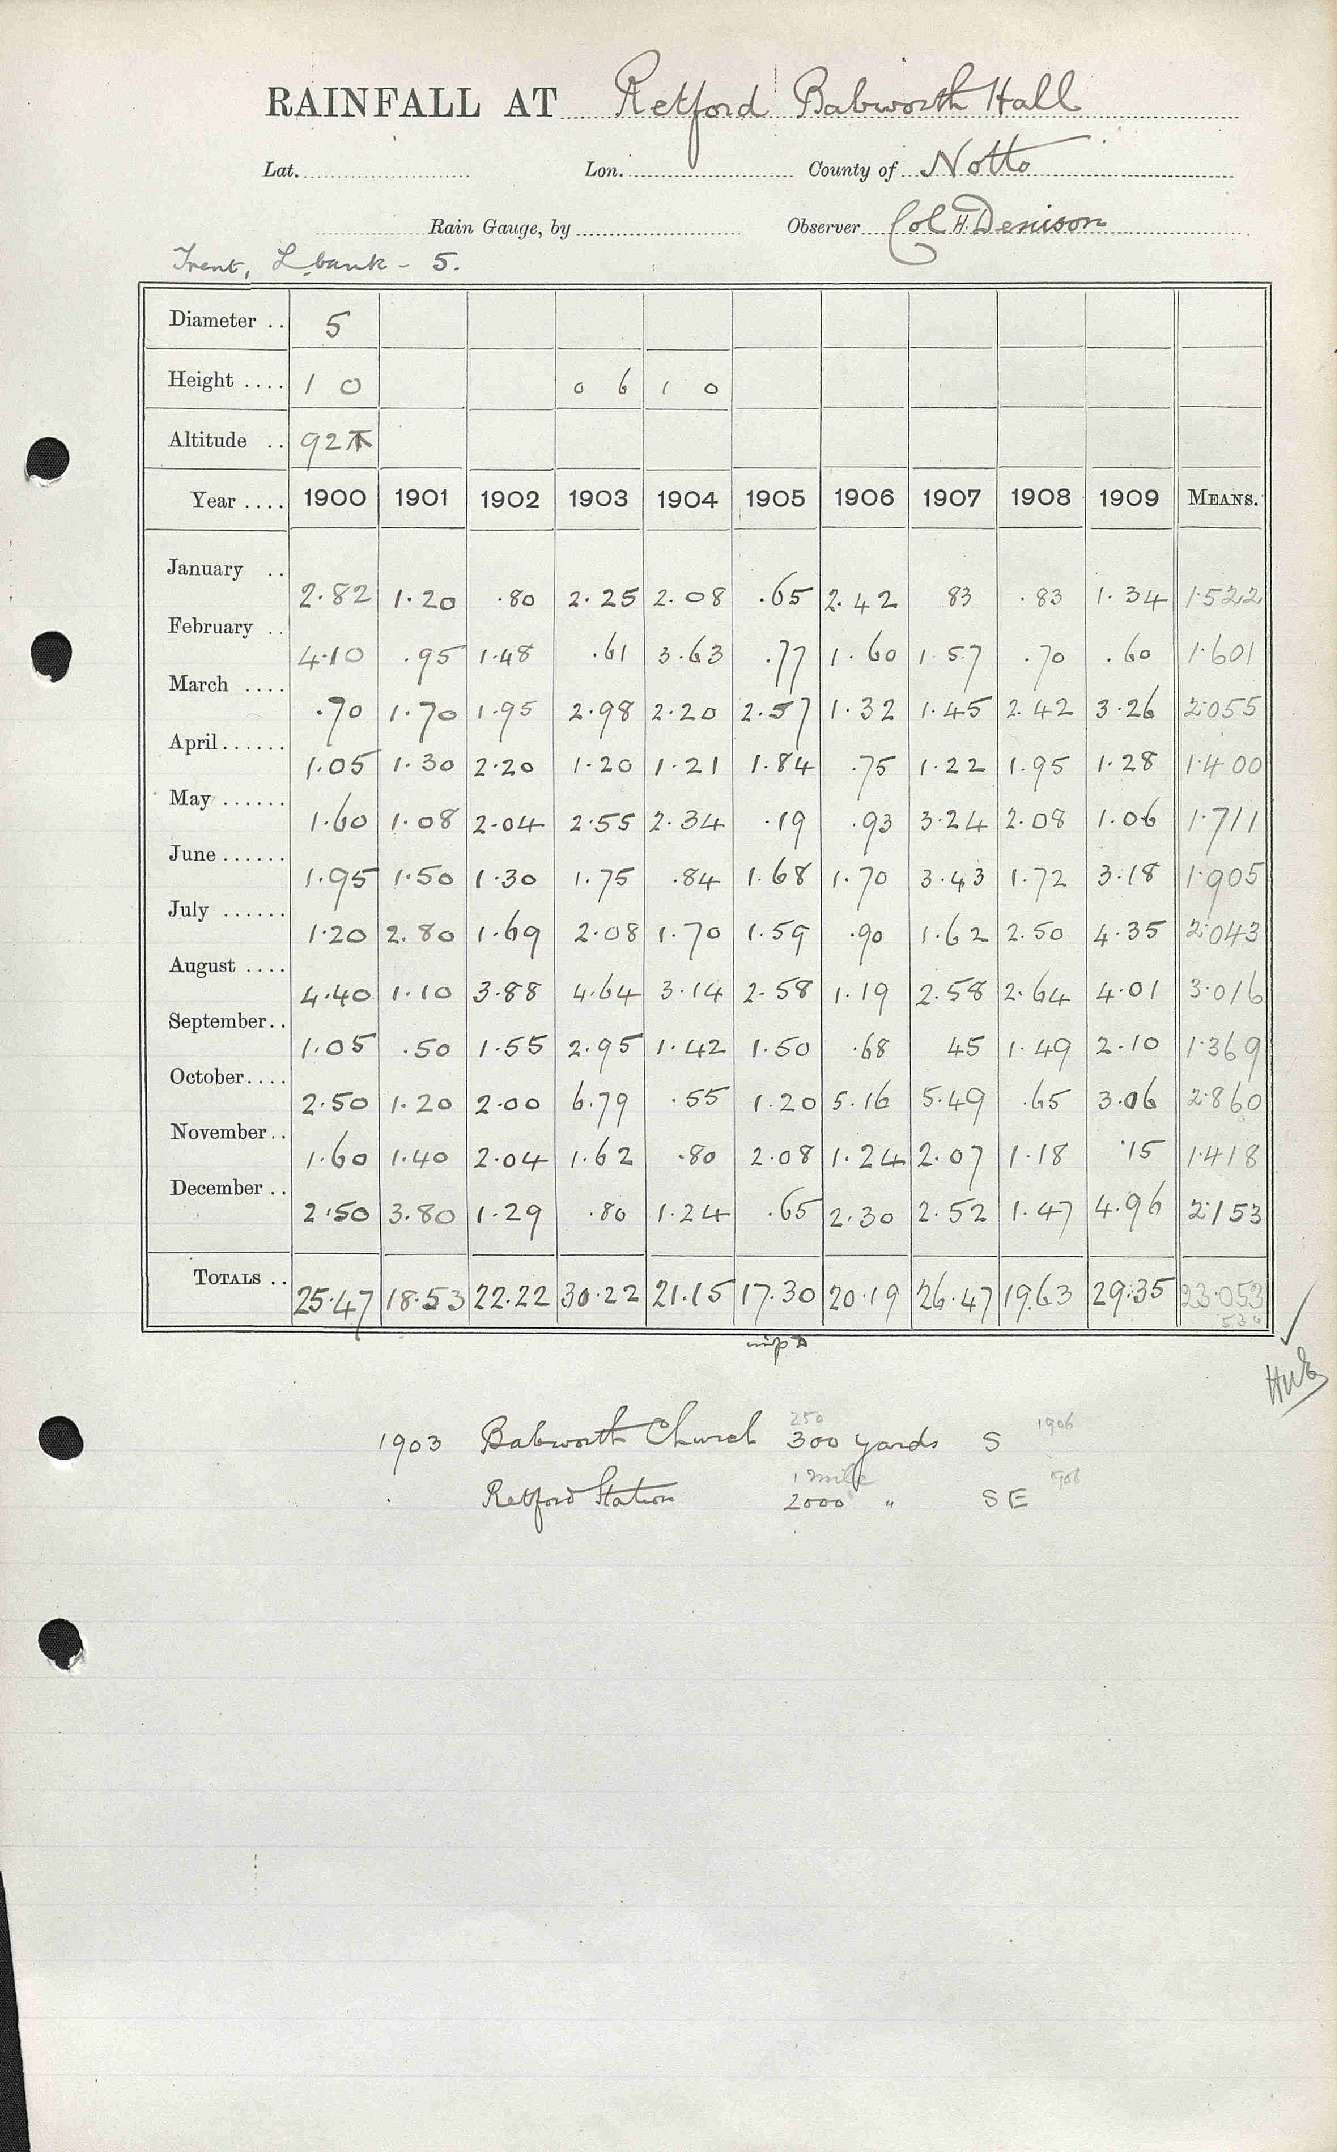 RAINFALL AT Retford Babworth Hall
Lat. Lon. County of Notts
Rain Gauge, by Observer Col H. Denison
Trent, L bank - 5.
Diameter .. 5
Height .... 1 0 0 6 1 0
Altitude .. 92
Year .... 1900 1901 1902 1903 1904 1905 1906 1907 1908 1909 MEANS.
January .. 2.82 1.20 .80 2.25 2.08 .65 2.42 83 .83 1.34 1.522
February .. 4.10 .95 1.48 .61 3.63 .77 1.60 1.57 .70 .60 1.601
March .... .70 1.70 1.95 2.98 2.20 2.57 1.32 1.45 2.42 3.26 2.055
April ...... 1.05 1.30 2.20 1.20 1.21 1.84 .75 1.22 1.95 1.28 1.400
May ...... 1.60 1.08 2.04 2.55 2.34 .19 .93 3.24 2.08 1.06 1.711
June ...... 1.95 1.50 1.30 1.75 .84 1.68 1.70 3.43 1.72 3.18 1.905
July ...... 1.20 2.80 1.69 2.08 1.70 1.59 .90 1.62 2.50 4.35 2.043
August .... 4.40 1.10 3.88 4.64 3.14 2.58 1.19 2.58 2.64 4.01 3.016
September .. 1.05 .50 1.55 2.95 1.42 1.50 .68 45 1.49 2.10 1.369
October .... 2.50 1.20 2.00 6.79 .55 1.20 5.16 5.49 .65 3.06 2.860
November .. 1.60 1.40 2.04 1.62 .80 2.08 1.24 2.07 1.18 .15 1.418
December .. 2.50 3.80 1.29 .80 1.24 .65 2.30 2.52 1.47 4.96 2.153
TOTALS .. 25.47 18.53 22.22 30.22 21.15 17.30 20.19 26.47 19.63 29.35 23.053
250 1906
1903 Babworth Church 300 yards S
1 mile 1906
Retford Station 2000 " SE